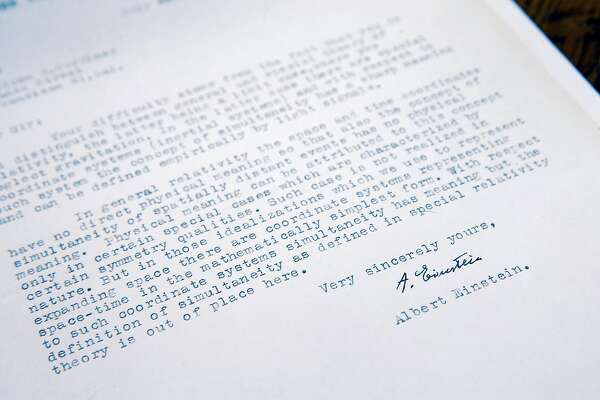 Sir:
Your difficulty stems from the fact that you do
distinguish between general and special theory of
relativity, the latter being a limit case, where you
neglect gravitation. In the latter case there are special
coordinate systems (inertial systems) and with respect to
such system the concept of simultaneity has a sharp meaning
and can be defined empirically by light signals.
In general relativity the space and time coordinates
have no direct physical meaning so that also the concept of
simultaneity of spatially distant events has no physical
meaning. Physical meaning can be attributed to this concept
only in certain special cases which are characterized by
certain symmetry qualities. Such case is not realized in
nature. But in those idealizations which we use to represent
expanding space there are coordinate systems representing
space-time in the mathematically simplest form. With respect
to such coordinate systems simultaneity has meaning but the
definition of simultaneity as defined in special relativity
theory is out of place here.
Very sincerely yours,
A. Einstein
Albert Einstein.